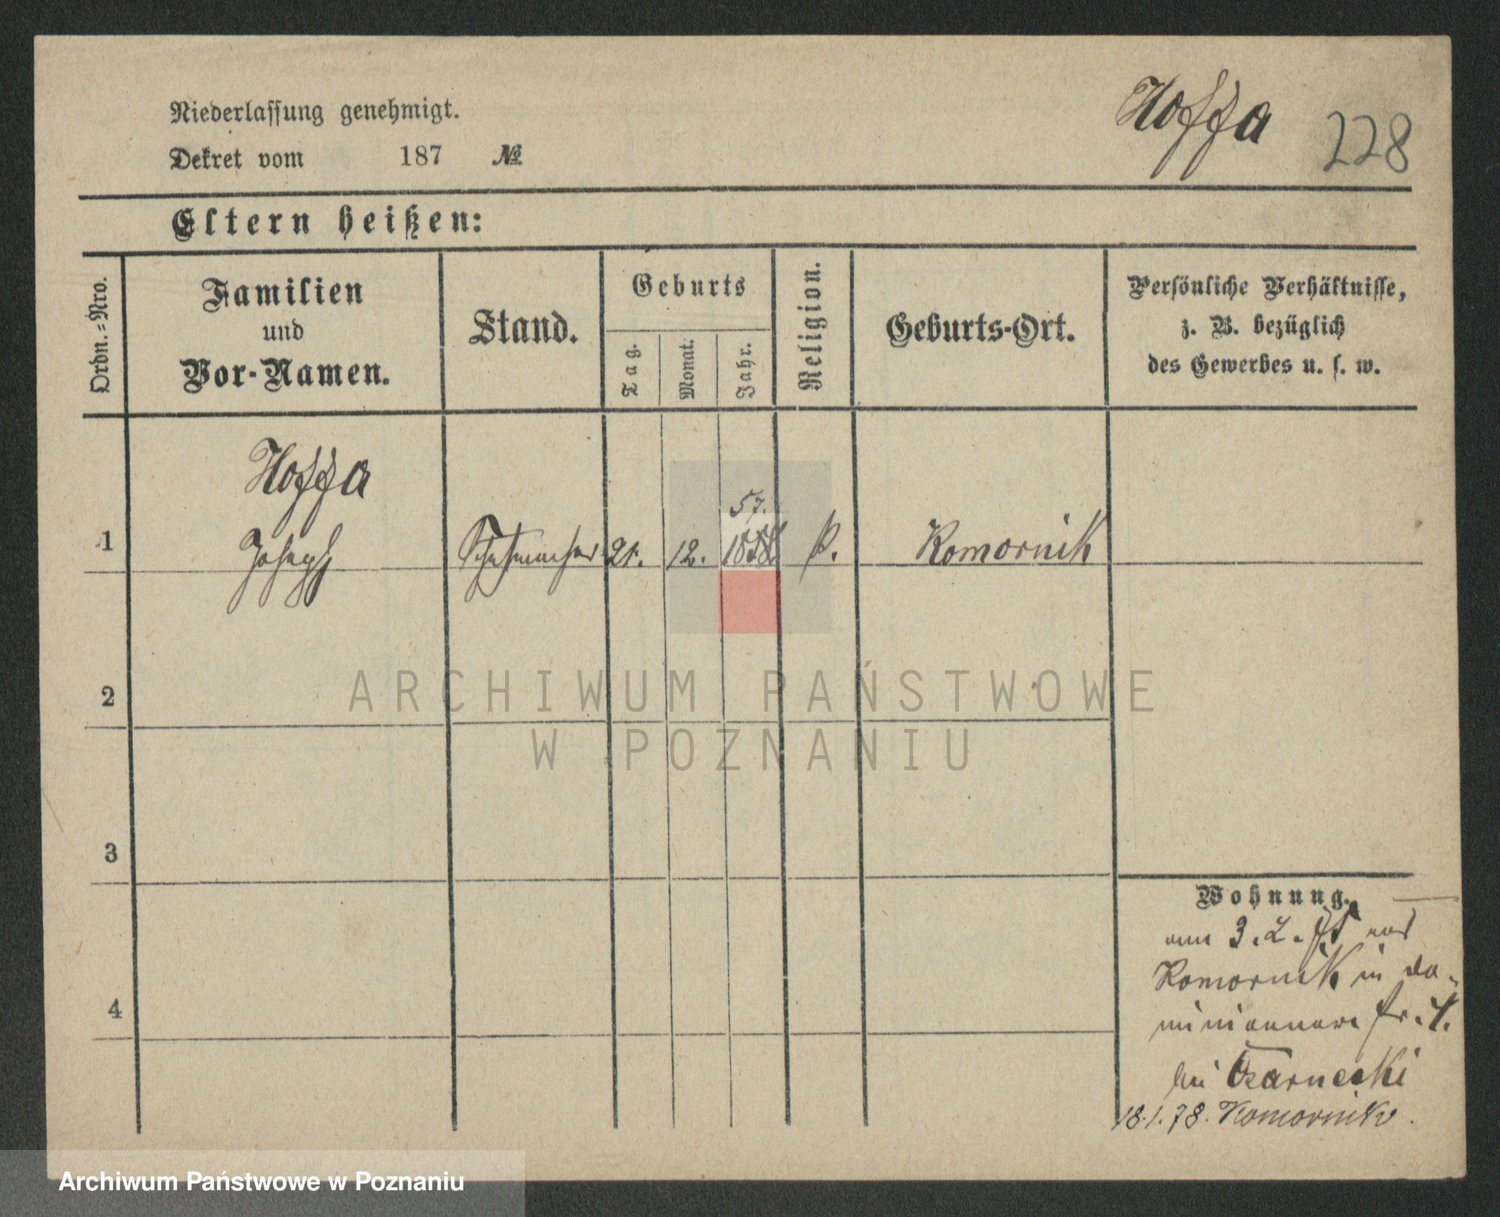 Niederlassung genehmigt.
Dekret vom 187 №
Hoffa 228
Eltern heißen:
Ordn.=Nro.
Familien
und
Vor-Namen.
Stand.
Geburts
Tag.
Monat.
Jahr.
Religion.
Geburts-Ort.
Persönliche Verhältnisse,
z. B. bezüglich
des Gewerbes u. s. w.
Hoffa
57.
1 Joseph Schuhmacher 21. 12. 1858. k. Komornik
2
3
4
Wohnung.
am 3.2. aus
Komornik in Do-
minicaner
bei Czarnecki
18.1.78. Komornik.
ARCHIWUM PAŃSTWOWE
W POZNANIU
Archiwum Państwowe w Poznaniu